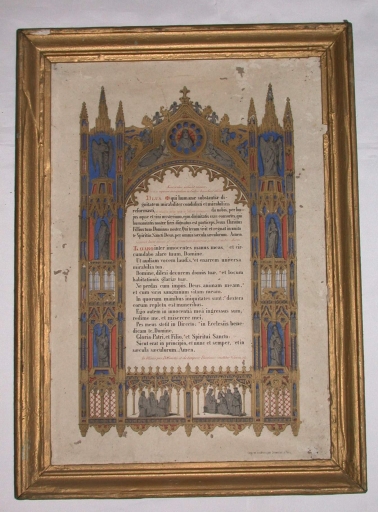 DEUS qui humanae substantiae di-
gnitatem mirabiliter condidisti et mirabilius
reformasti,
jus aquae et vini mysterium, ejus divinitatis esse consortes, qui
humanitatis nostrae fieri dignatus est particeps, Jesus Christus
Filius tuus Dominus noster: Qui tecum vivit et regnat in unita-
te Spiritus Sancti Deus per omnia saecula saeculorum. Amen.
LAVABO inter innocentes manus meas: et cir-
cumdabo altare tuum, Domine.
Ut audiam vocem laudis, et enarrem universa
mirabilia tua.
Domine, dilexi decorem domus tuae, et locum
habitationis gloriae tuae.
Ne perdas cum impiis, Deus, animam meam,
et cum viris sanguinum vitam meam.
In quorum manibus iniquitates sunt: dextera
eorum repleta est muneribus.
Ego autem in innocentia mea ingressus sum,
redime me, et miserere mei.
Pes meus stetit in directo: in Ecclesiis bene-
dicam te, Domine.
Gloria Patri, et Filio, et Spiritui Sancto.
Sicut erat in principio, et nunc et semper, et in
saecula saeculorum. Amen.